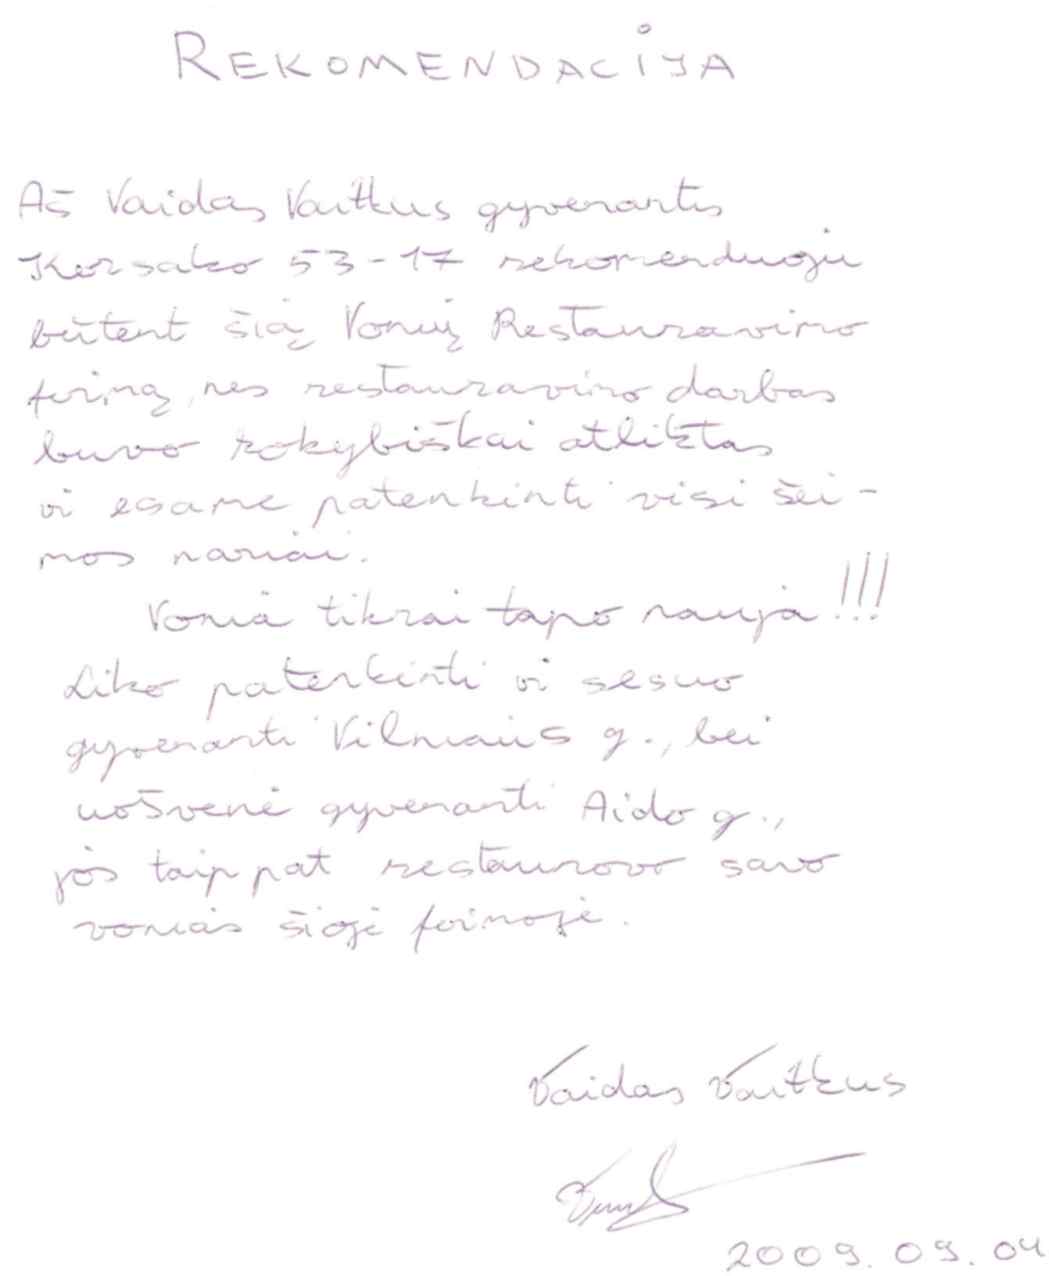 REKOMENDACIJA
Aš Vaidas Vaitkus gyvenantis
Korsako 53-17 rekomenduoju
būtent šią Vonių Restauravimo
firmą, nes restauravimo darbas
buvo kokybiškai atliktas
ir esame patenkinti visi šei-
mos nariai.
Vonia tikrai tapo nauja!!!
Liko patenkinti ir sesuo
gyvenanti Vilniaus g., bei
uošvenė gyvenanti Aido g.,
jos taip pat restauravo savo
vonias šioje firmoje.
Vaidas Vaitkus
2009.09.04